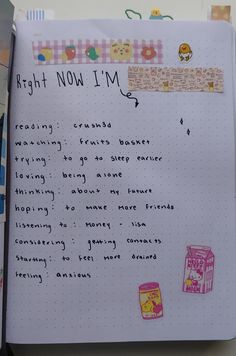 Right NOW I'M
reading: crush3d
watching: fruits basket
trying: to go to sleep earlier
loving: being alone
thinking: about my future
hoping: to make more friends
listening to: money - lisa
considering: getting contacts
starting: to feel more drained
feeling: anxious
MILK